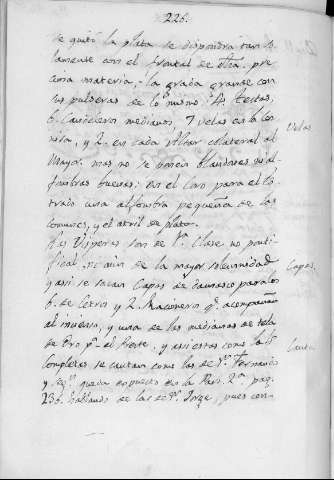 226.
se quitó la plata se dispondrá tan so-
lamente con el frontal de otra pre-
ciosa materia; la grada grande con
sus pulseras de lo mismo: 4 testas,
6. Candeleros medianos 7 velas en la cor-
nisa, y 2. en cada Altar colateral al
Velas
Mayor: mas no se ponen blandones ni al-
fombras buenas: en el Coro para el le-
trado una alfombra pequeña de las
comunes, y el atril de plata.
Las Visperas son de 1.ª Clase no ponti-
fical, ni aun de la mayor solemnidad
y assi se sacan Capas de Damasco para los
Capas.
6. de Cetros y 2. Maceros q.e acompañan
al incienso, y una de las medianas de tela
de Oro p.ª el Preste, y assi estas como las
Completas se cantan como las de S.n Fernando
y queda expuesto en la Par. 2.ª pag.
236. hablando de las de S.n Jorge, pues con-